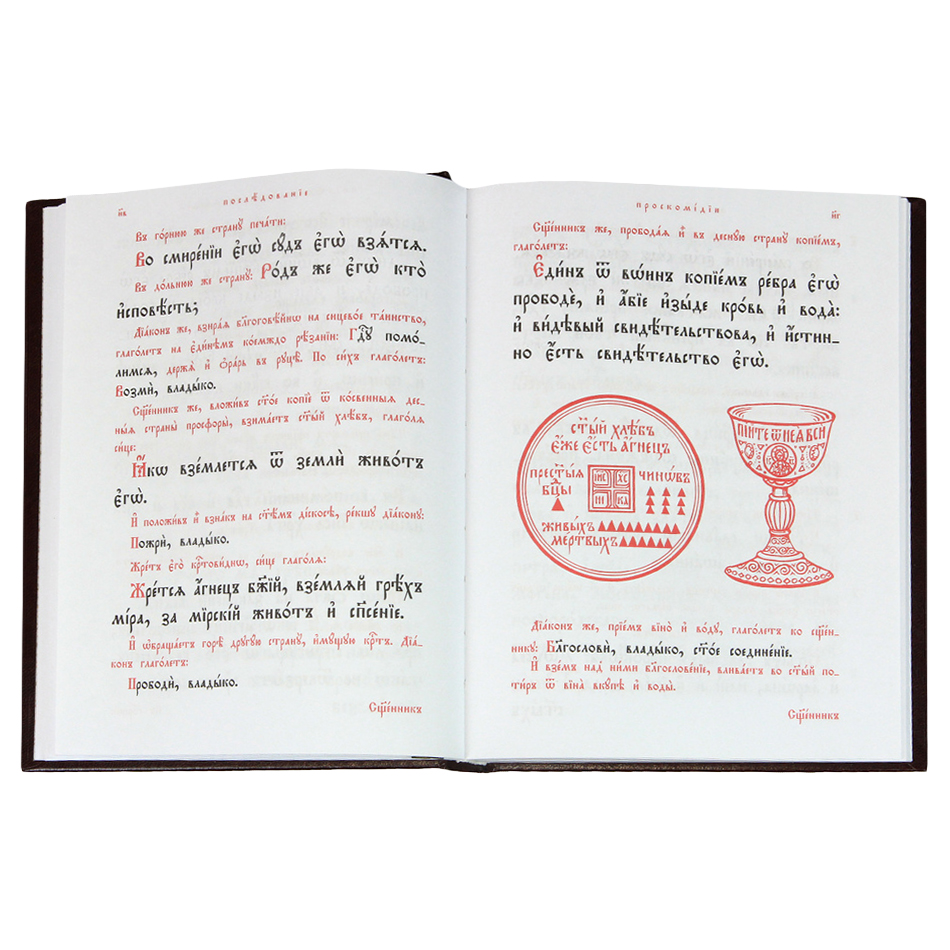 п҃в
послѣ́дованїе
Въ го́рнюю же странꙋ̀ печа́ти:
Во смире́нїи є҆гѡ̀ сꙋ́дъ є҆гѡ̀ взѧ́тсѧ.
Въ до́льнюю же странꙋ̀: Ро́дъ же є҆гѡ̀ кто̀
и҆сповѣ́сть;
Дїа́конъ же, взира́ѧ бл҃гоговѣ́йнѡ на сицево́е та́инство,
глаго́летъ на є҆ди́нѣмъ ко́емждо рѣ́занїи: Гдⷭ҇ꙋ помо́-
лимсѧ, держѧ̀ и҆ ѻ҆ра́рь въ рꙋцѣ̀. По си́хъ глаго́летъ:
Возмѝ, влады́ко.
Сщ҃е́нникъ же, вложи́въ ст҃о́е копїѐ ѿ ко́свенныѧ дес-
ны́ѧ страны̀ просфоры̀, взима́етъ ст҃ы́й хлѣ́бъ, глаго́лѧ
си́це:
Ꙗ҆́кѡ взе́млетсѧ ѿ землѝ живо́тъ
є҆гѡ̀.
И҆ положи́въ и҆̀ взна́къ на ст҃ѣ́мъ ді́скосѣ, ре́кшꙋ дїа́конꙋ:
Пожрѝ, влады́ко.
Жре́тъ є҆го̀ крⷭ҇тови́днѡ, си́це глаго́лѧ:
Жре́тсѧ а҆́гнецъ бж҃їй, взе́млѧй грѣ́хъ
мі́ра, за мїрскі́й живо́тъ и҆ сп҃се́нїе.
И҆ ѡ҆браща́етъ горѣ̀ дрꙋгꙋ́ю странꙋ̀, и҆мꙋ́щꙋю крⷭ҇тъ. Дїа́-
конъ глаго́летъ:
Прободѝ, влады́ко.
Сщ҃е́нникъ
проскомі́дїи
п҃г
Сщ҃е́нникъ же, пробода́ѧ и҆̀ въ деснꙋ́ю странꙋ̀ копїе́мъ,
глаго́летъ:
Є҆ди́нъ ѿ вѡ́инъ копїе́мъ ре́бра є҆гѡ̀
прободѐ, и҆ а҆́бїе и҆зы́де кро́вь и҆ вода̀:
и҆ ви́дѣвый свидѣ́тельствова, и҆ и҆́стин-
но є҆́сть свидѣ́тельство є҆гѡ̀.
ст҃ы́й хлѣ́бъ
є҆́же є҆́сть а҆́гнецъ
прест҃ы́ѧ
бцⷣы
І҆И҃С ХС
НИ КА
чинѡ́въ
живы́хъ
ме́ртвыхъ
ПІЙТЕ Ѿ НЕѦ̀ ВСЍ
Дїа́конъ же, прїе́мъ вїно̀ и҆ во́дꙋ, глаго́летъ ко сщ҃е́н-
никꙋ: Бл҃гословѝ, влады́ко, ст҃о́е соедине́нїе.
И҆ взе́мъ над ни́ми бл҃гослове́нїе, влива́етъ во ст҃ы́й по-
ти́ръ ѿ вїна̀ вкꙋ́пѣ и҆ воды̀.
Сщ҃е́нникъ